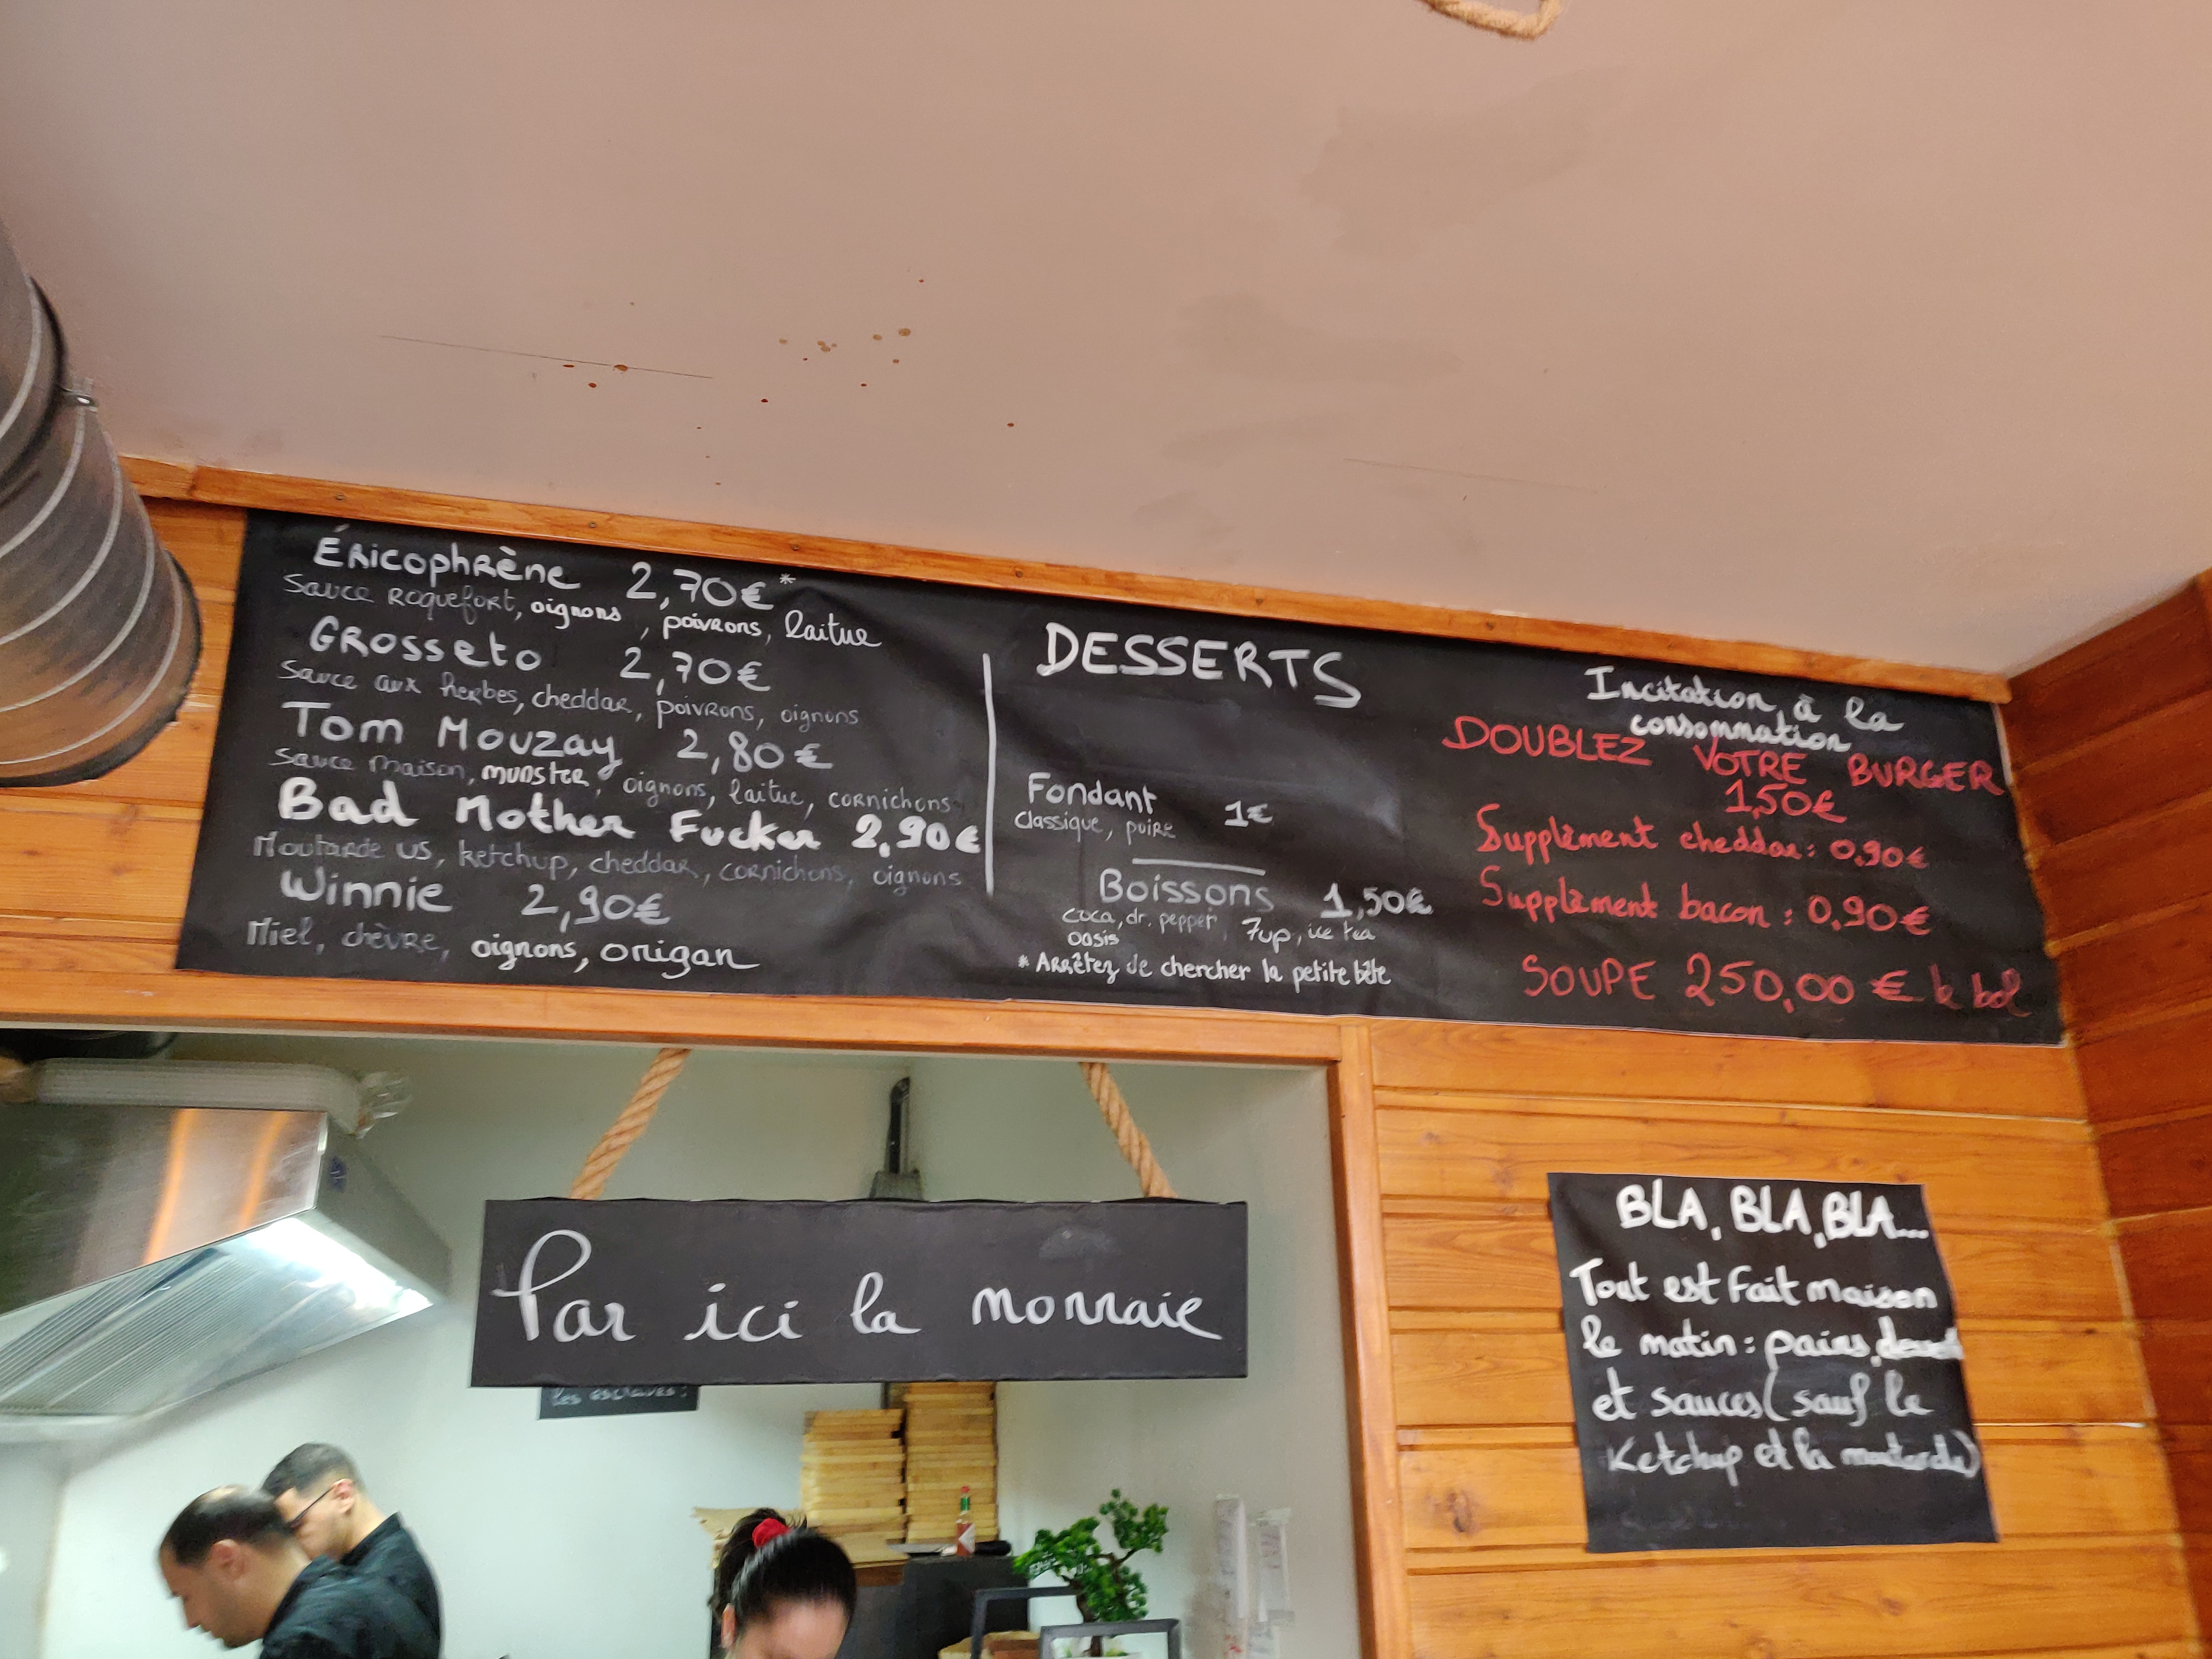 Éricophrène 2,70€*
Sauce roquefort, oignons, poivrons, laitue
Grosseto 2,70€
Sauce aux herbes, cheddar, poivrons, oignons
Tom Mouzay 2,80€
Sauce maison, munster, oignons, laitue, cornichons
Bad Mother Fucker 2,90€
Moutarde US, ketchup, cheddar, cornichons, oignons
Winnie 2,90€
Miel, chèvre, oignons, origan
DESSERTS
Fondant 1€
classique, poire
Boissons 1,50€
coca, dr. pepper, 7up, ice tea
oasis
* Arrêtez de chercher la petite bête
Incitation à la
consommation
DOUBLEZ VOTRE BURGER
1,50€
Supplèment cheddar : 0,90€
Supplèment bacon : 0,90€
SOUPE 250,00 € le bol
Par ici la monnaie
les esclaves :
BLA, BLA, BLA...
Tout est fait maison
le matin : pains,
et sauces (sauf le
Ketchup et la moutarde)